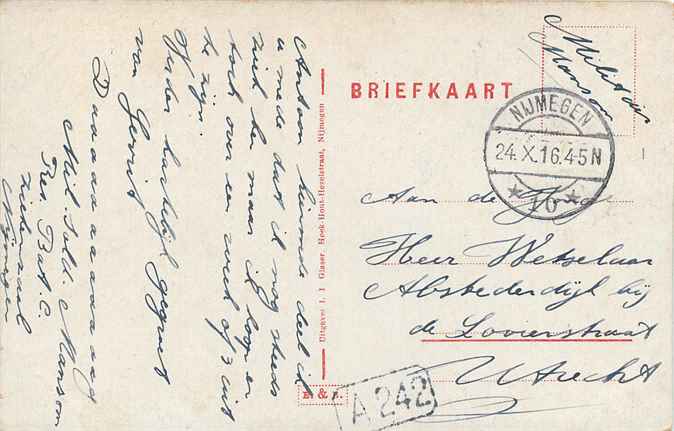 Anton hiermede deel ik
u mede dat ik nog steeds
ziek ben maar ik hoop er
toch over een week of 3 uit
te zijn.
Verder hartelijk gegroet
van Gerrit
Daaaaaaaaaaag
Mil. Sold. Manson
Res. Bat. C.
ziekenzaal
Nijmegen
Uitgever I. I Glaser, Hoek Hout-Hezelstraat, Nijmegen
B. & J.
BRIEFKAART
Militair
Manson
NIJMEGEN
24.X.16.4-5N
* 10 *
Aan de
Heer Wetselaar
Abstederdijk bij
de Lovierstraat
Utrecht
A 242